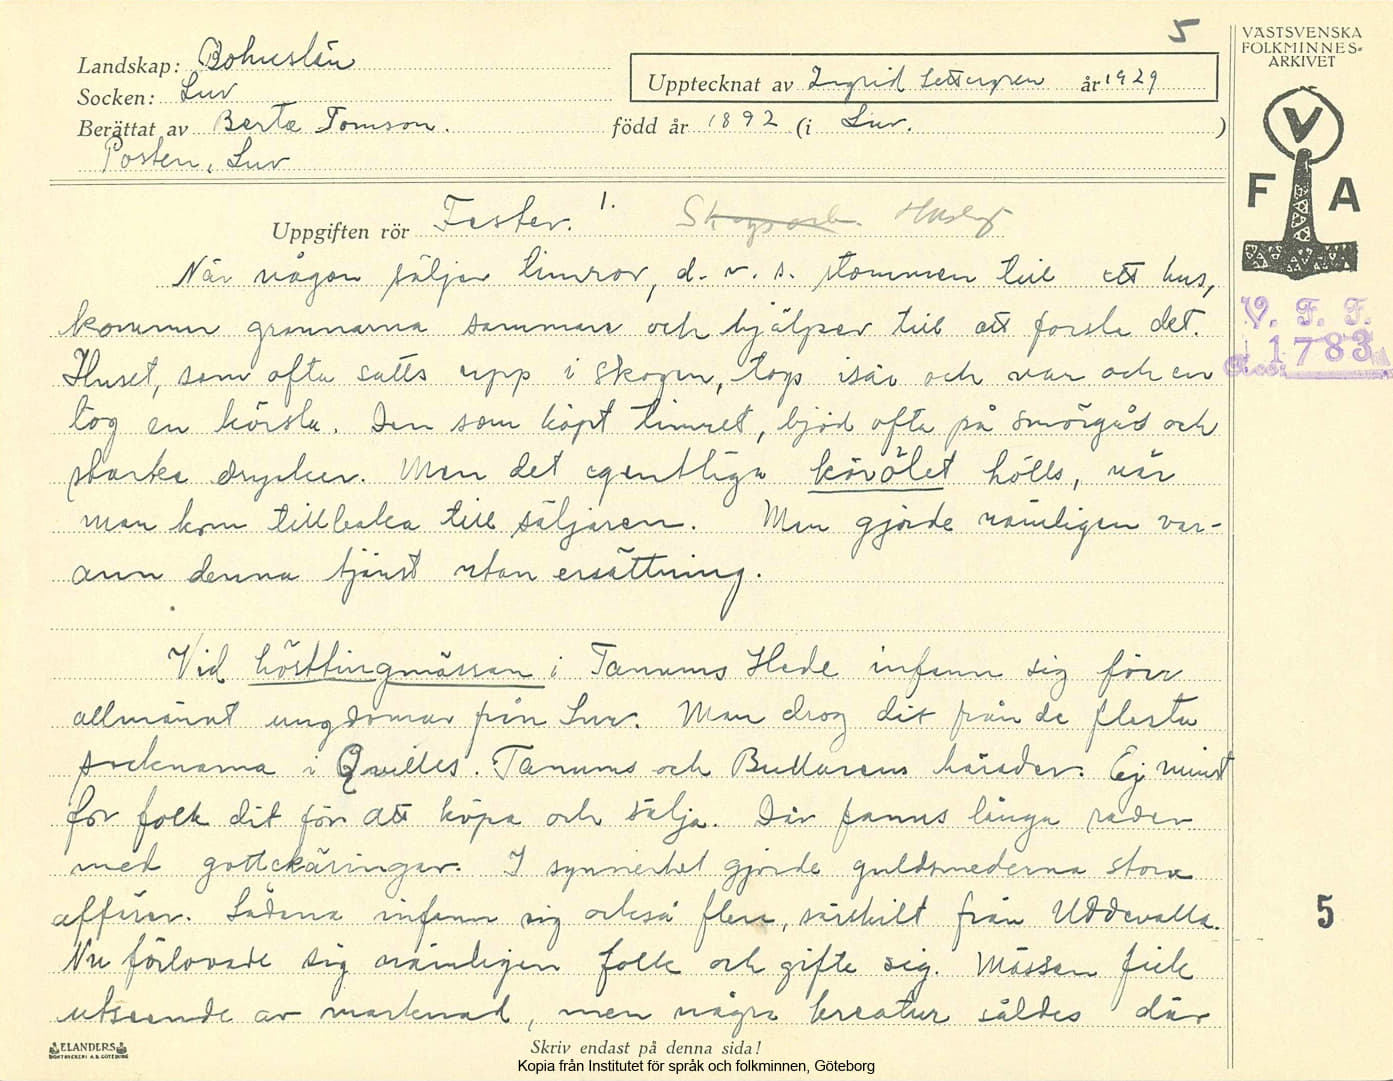 5
VÄSTSVENSKA
FOLKMINNES-
ARKIVET
V
F A
Landskap: Bohuslän
Socken: Lur
Upptecknat av Ingrid Settergren år 1929
Berättat av Berta Tomson. född år 1892 (i Lur. )
Posten, Lur
Uppgiften rör Fester. 1. Skogsarb. Husbyg
När någon säljer timror, d. v. s. stommen till ett hus,
kommer grannarna samman och hjälper till att forsla det.
Huset, som ofta satts upp i skogen, togs isär och var och en
tog en körsla. Den som köpt timret, bjöd ofta på smörgås och
starka drycker. Men det egentliga körölet hölls, när
man kom tillbaka till säljaren. Men gjorde nämligen var-
ann denna tjänst utan ersättning.
Vid hösttingmässan i Tanums Hede infann sig förr
allmännt ungdomar från Lur. Man drog dit från de flesta
socknarna i Qvilles. Tanums och Bullarens härader. Ej minst
for folk dit för att köpa och sälja. Där fanns långa rader
med gottekäringar. I synnerhet gjorde guldsmederna stora
affärer. Sådana infann sig också flera, särskilt från Uddevalla.
Nu förlovade sig nämligen folk och gifte sig. Mässan fick
utseende av marknad, men några kreatur såldes där
V. F. F.
1783
5
ELANDERS
BOKTRYCKERI A.B. GÖTEBORG
Skriv endast på denna sida!
Kopia från Institutet för språk och folkminnen, Göteborg